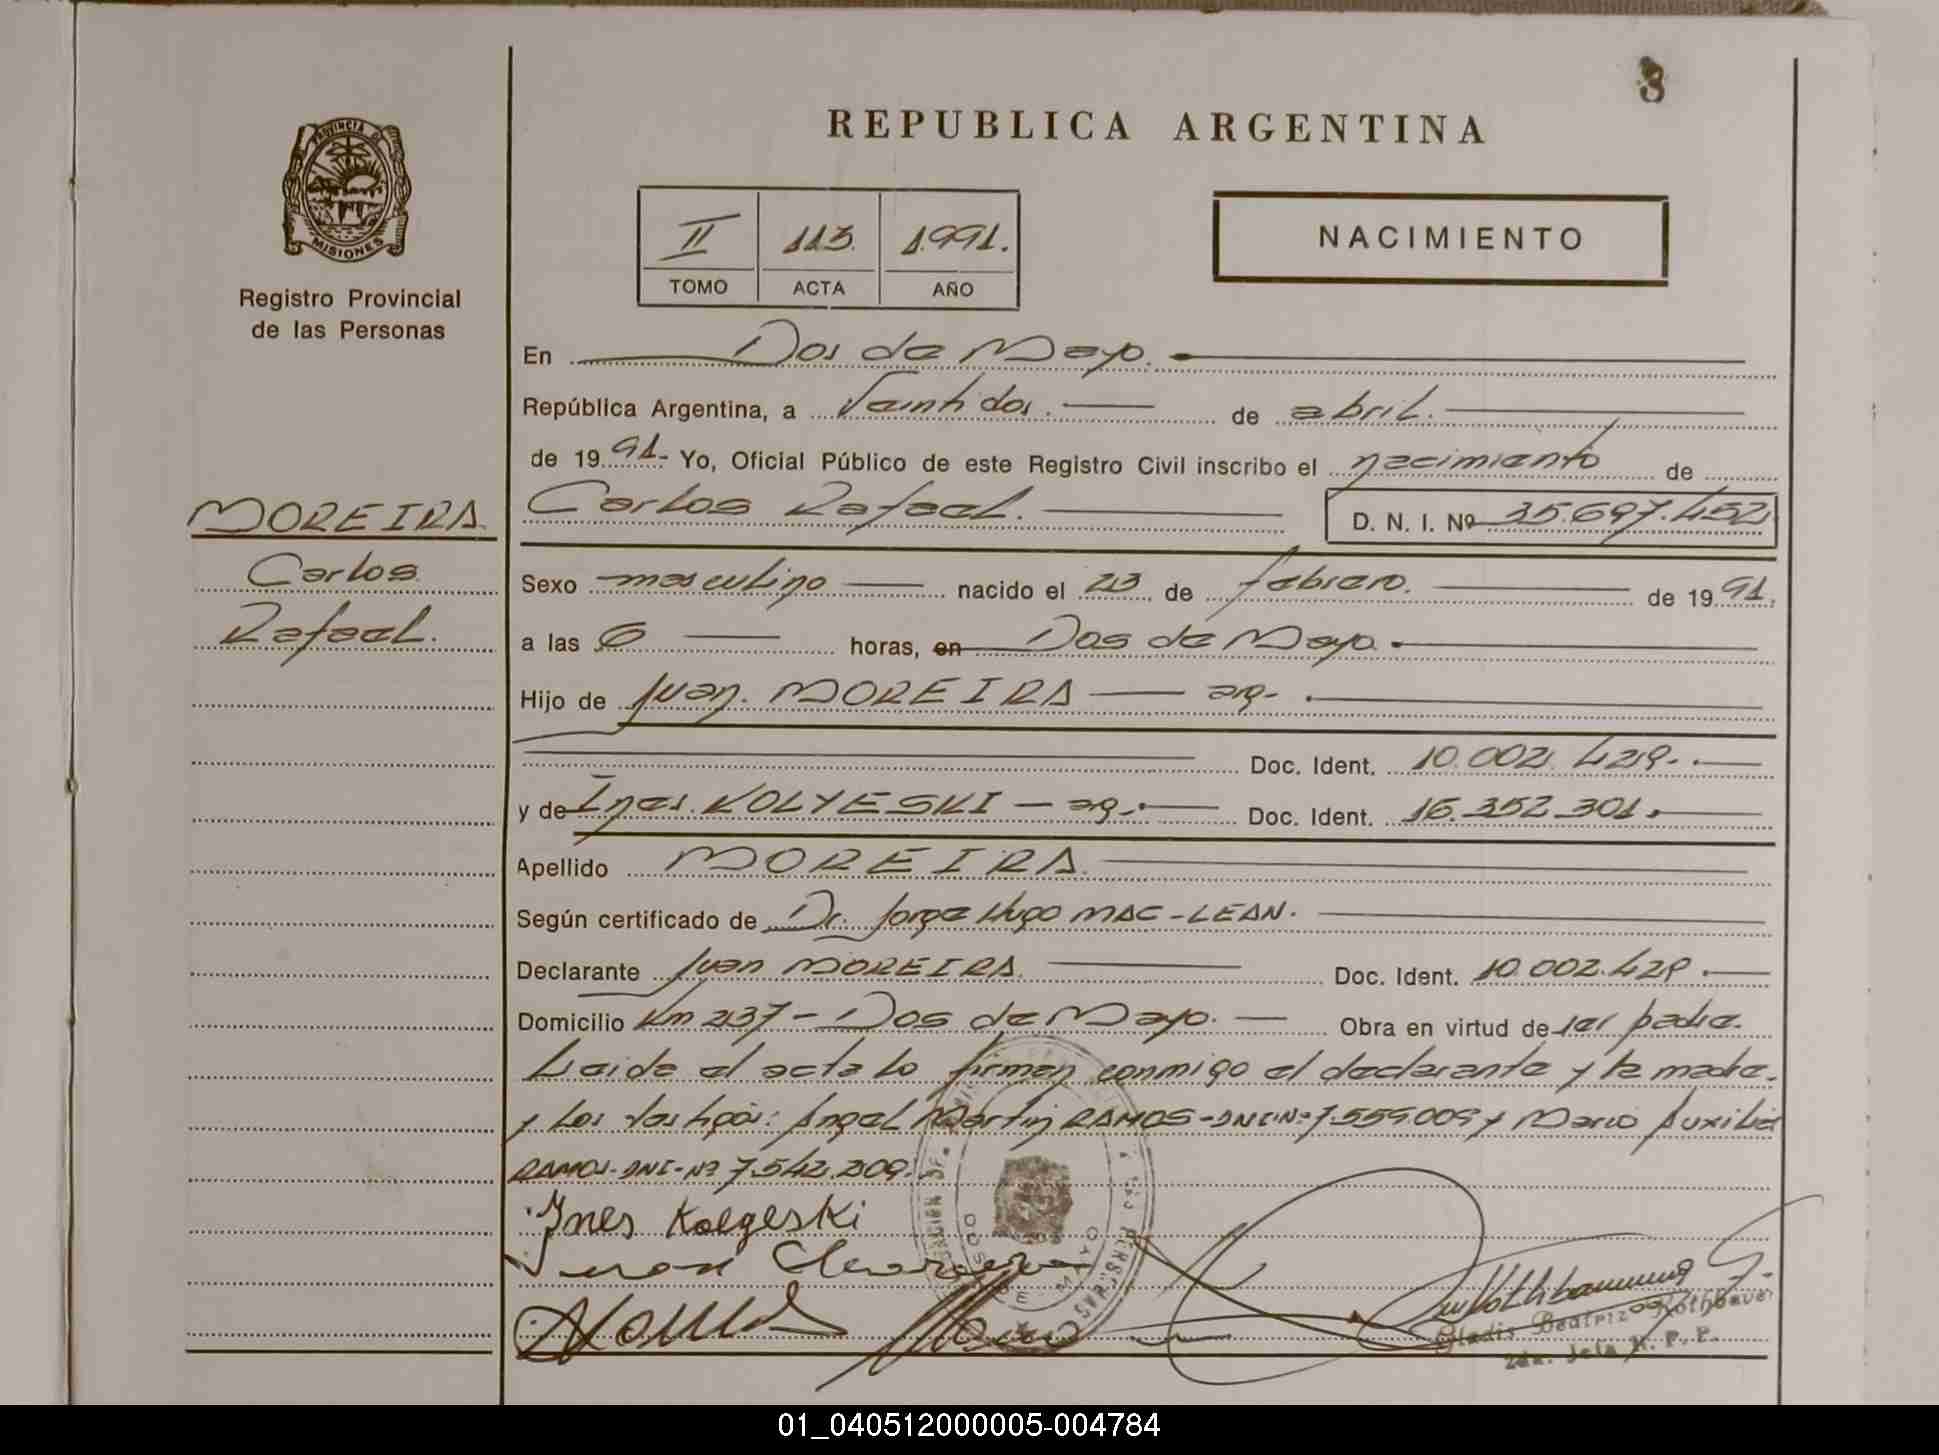 8
REPUBLICA ARGENTINA
PROVINCIA DE
MISIONES
Registro Provincial
de las Personas
II 113. 1991.
TOMO ACTA AÑO
NACIMIENTO
En Dos de Mayo.
República Argentina, a Veintidos. de abril.
de 1991- Yo, Oficial Público de este Registro Civil inscribo el nacimiento de
MOREIRA
Carlos
Rafael.
Carlos Rafael. D. N. I. Nº 35.697.452
Sexo masculino nacido el 23 de febrero. de 1991.
a las 6 horas, en Dos de Mayo.
Hijo de Juan. MOREIRA arg-
Doc. Ident. 10.002.429-.
y de Ines. KOLYESKI - arg-. Doc. Ident. 16.352.301.
Apellido MOREIRA.
Según certificado de Dr. Jorge Hugo MAC-LEAN.
Declarante Juan MOREIRA. Doc. Ident. 10.002.429.
Domicilio Km 237 - Dos de Mayo. Obra en virtud de ser padre.
Leida el acta lo firman conmigo el declarante y la madre.
y los testigos: Angel Martin RAMOS-DNI-Nº 7.559.009 y Mario Auxilio
RAMOS-DNI-Nº 7.542.209.
Ines Kolgeski
Juan Moreira
Gladis Beatriz Rothbauer
2da. Jefe R. P. P.
01_040512000005-004784